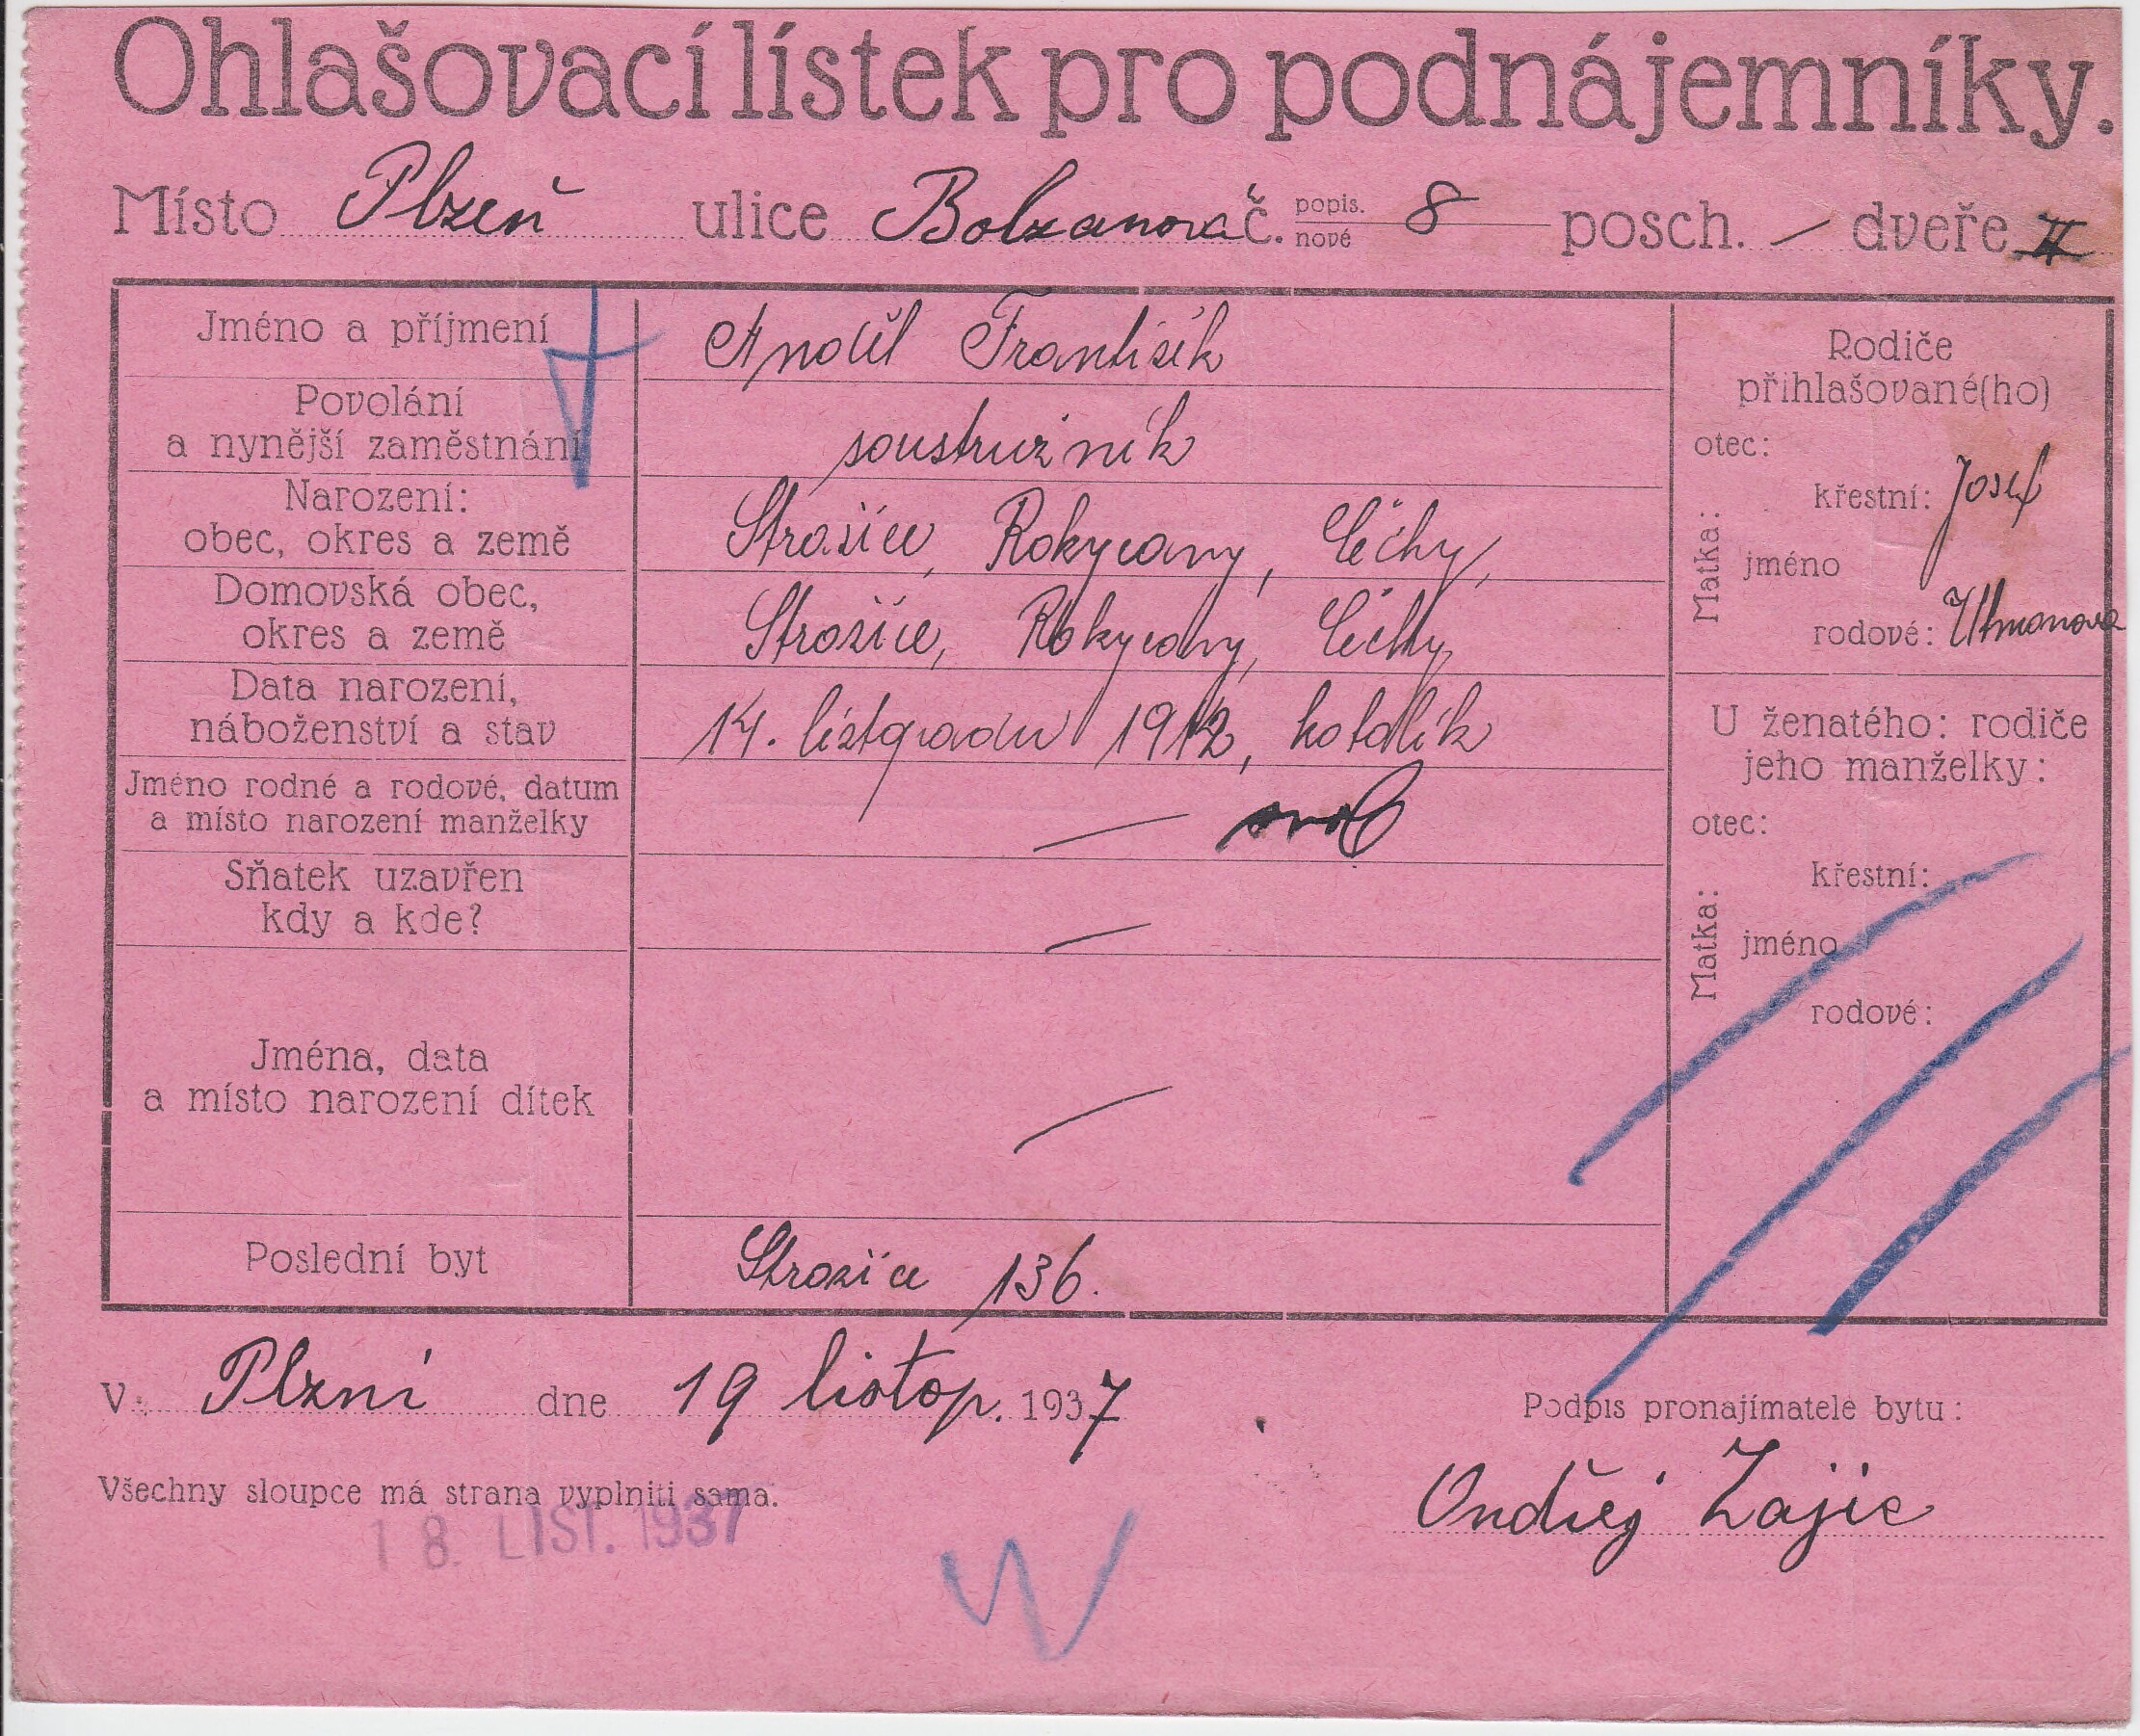 Ohlašovací lístek pro podnájemníky.
Místo Plzeň ulice Bolzanova č. popis. nové 8 posch. — dveře II
Jméno a příjmení Anděl František
Povolání a nynější zaměstnání soustružník
Narození: obec, okres a země Strašice, Rokycany, Čechy,
Domovská obec, okres a země Strašice, Rokycany, Čechy
Data narození, náboženství a stav 14. listopadu 1912, katolík
svob
Jméno rodné a rodové, datum a místo narození manželky —
Sňatek uzavřen kdy a kde? —
Jména, data a místo narození dítek —
Poslední byt Strašice 136.
Rodiče přihlašované(ho)
otec:
Matka:
křestní: Josef
jméno
rodové:
U ženatého: rodiče jeho manželky:
otec:
Matka:
křestní:
jméno
rodové:
V Plzni dne 19 listop. 1937
Podpis pronajímatele bytu:
Ondřej Zajic
Všechny sloupce má strana vyplniti sama.
18. LIST. 1937